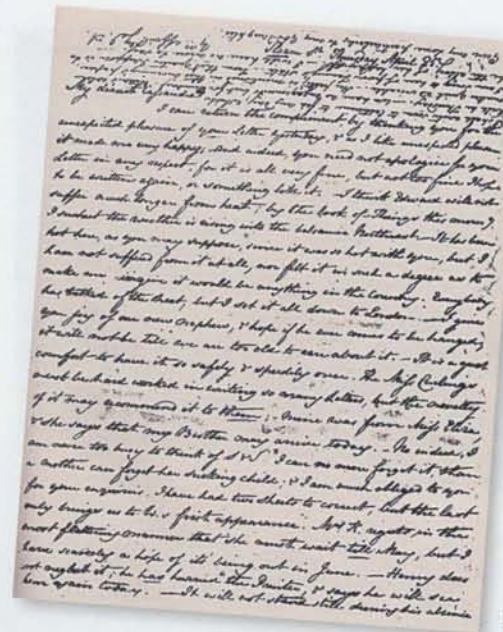 Sloane St Thursday April 25.
My dearest Cassandra
I can return the compliment by thanking you for the
unexpected pleasure of your Letter yesterday, & as I like unexpected pleasure,
it made me very happy; And indeed, you need not apologise for your
Letter in any respect, for it is all very fine, but not too fine I hope
to be written again, or something like it. I think Edward will not
suffer much longer from heat; by the look of Things this morng
I suspect the weather is rising into the balsamic Northeast. It has been
hot here, as you may suppose, since it was so hot with you, but I
have not suffered from it at all, nor felt it in such a degree as to
make me imagine it would be anything in the Country. Everybody
has talked of the heat, but I set it all down to London. — I give
you joy of our new nephew, & hope if he ever comes to be hanged,
it will not be till we are too old to care about it. — It is a great
comfort to have it so safely & speedily over. The Miss Curlings
must be hard worked in writing so many letters, but the novelty
of it may recommend it to them; — Mine was from Miss Eliza,
& she says that my Brother may arrive today. — No indeed, I
am never too busy to think of S & S. I can no more forget it, than
a mother can forget her sucking child; & I am much obliged to you
for your enquiries. I have had two sheets to correct, but the last
only brings us to W.s first appearance. Mrs K. regrets in the
most flattering manner that she must wait till May, but I
have scarcely a hope of its being out in June. — Henry does
not neglect it; he has hurried the Printer, & says he will see
him again today. — It will not stand still during his absence